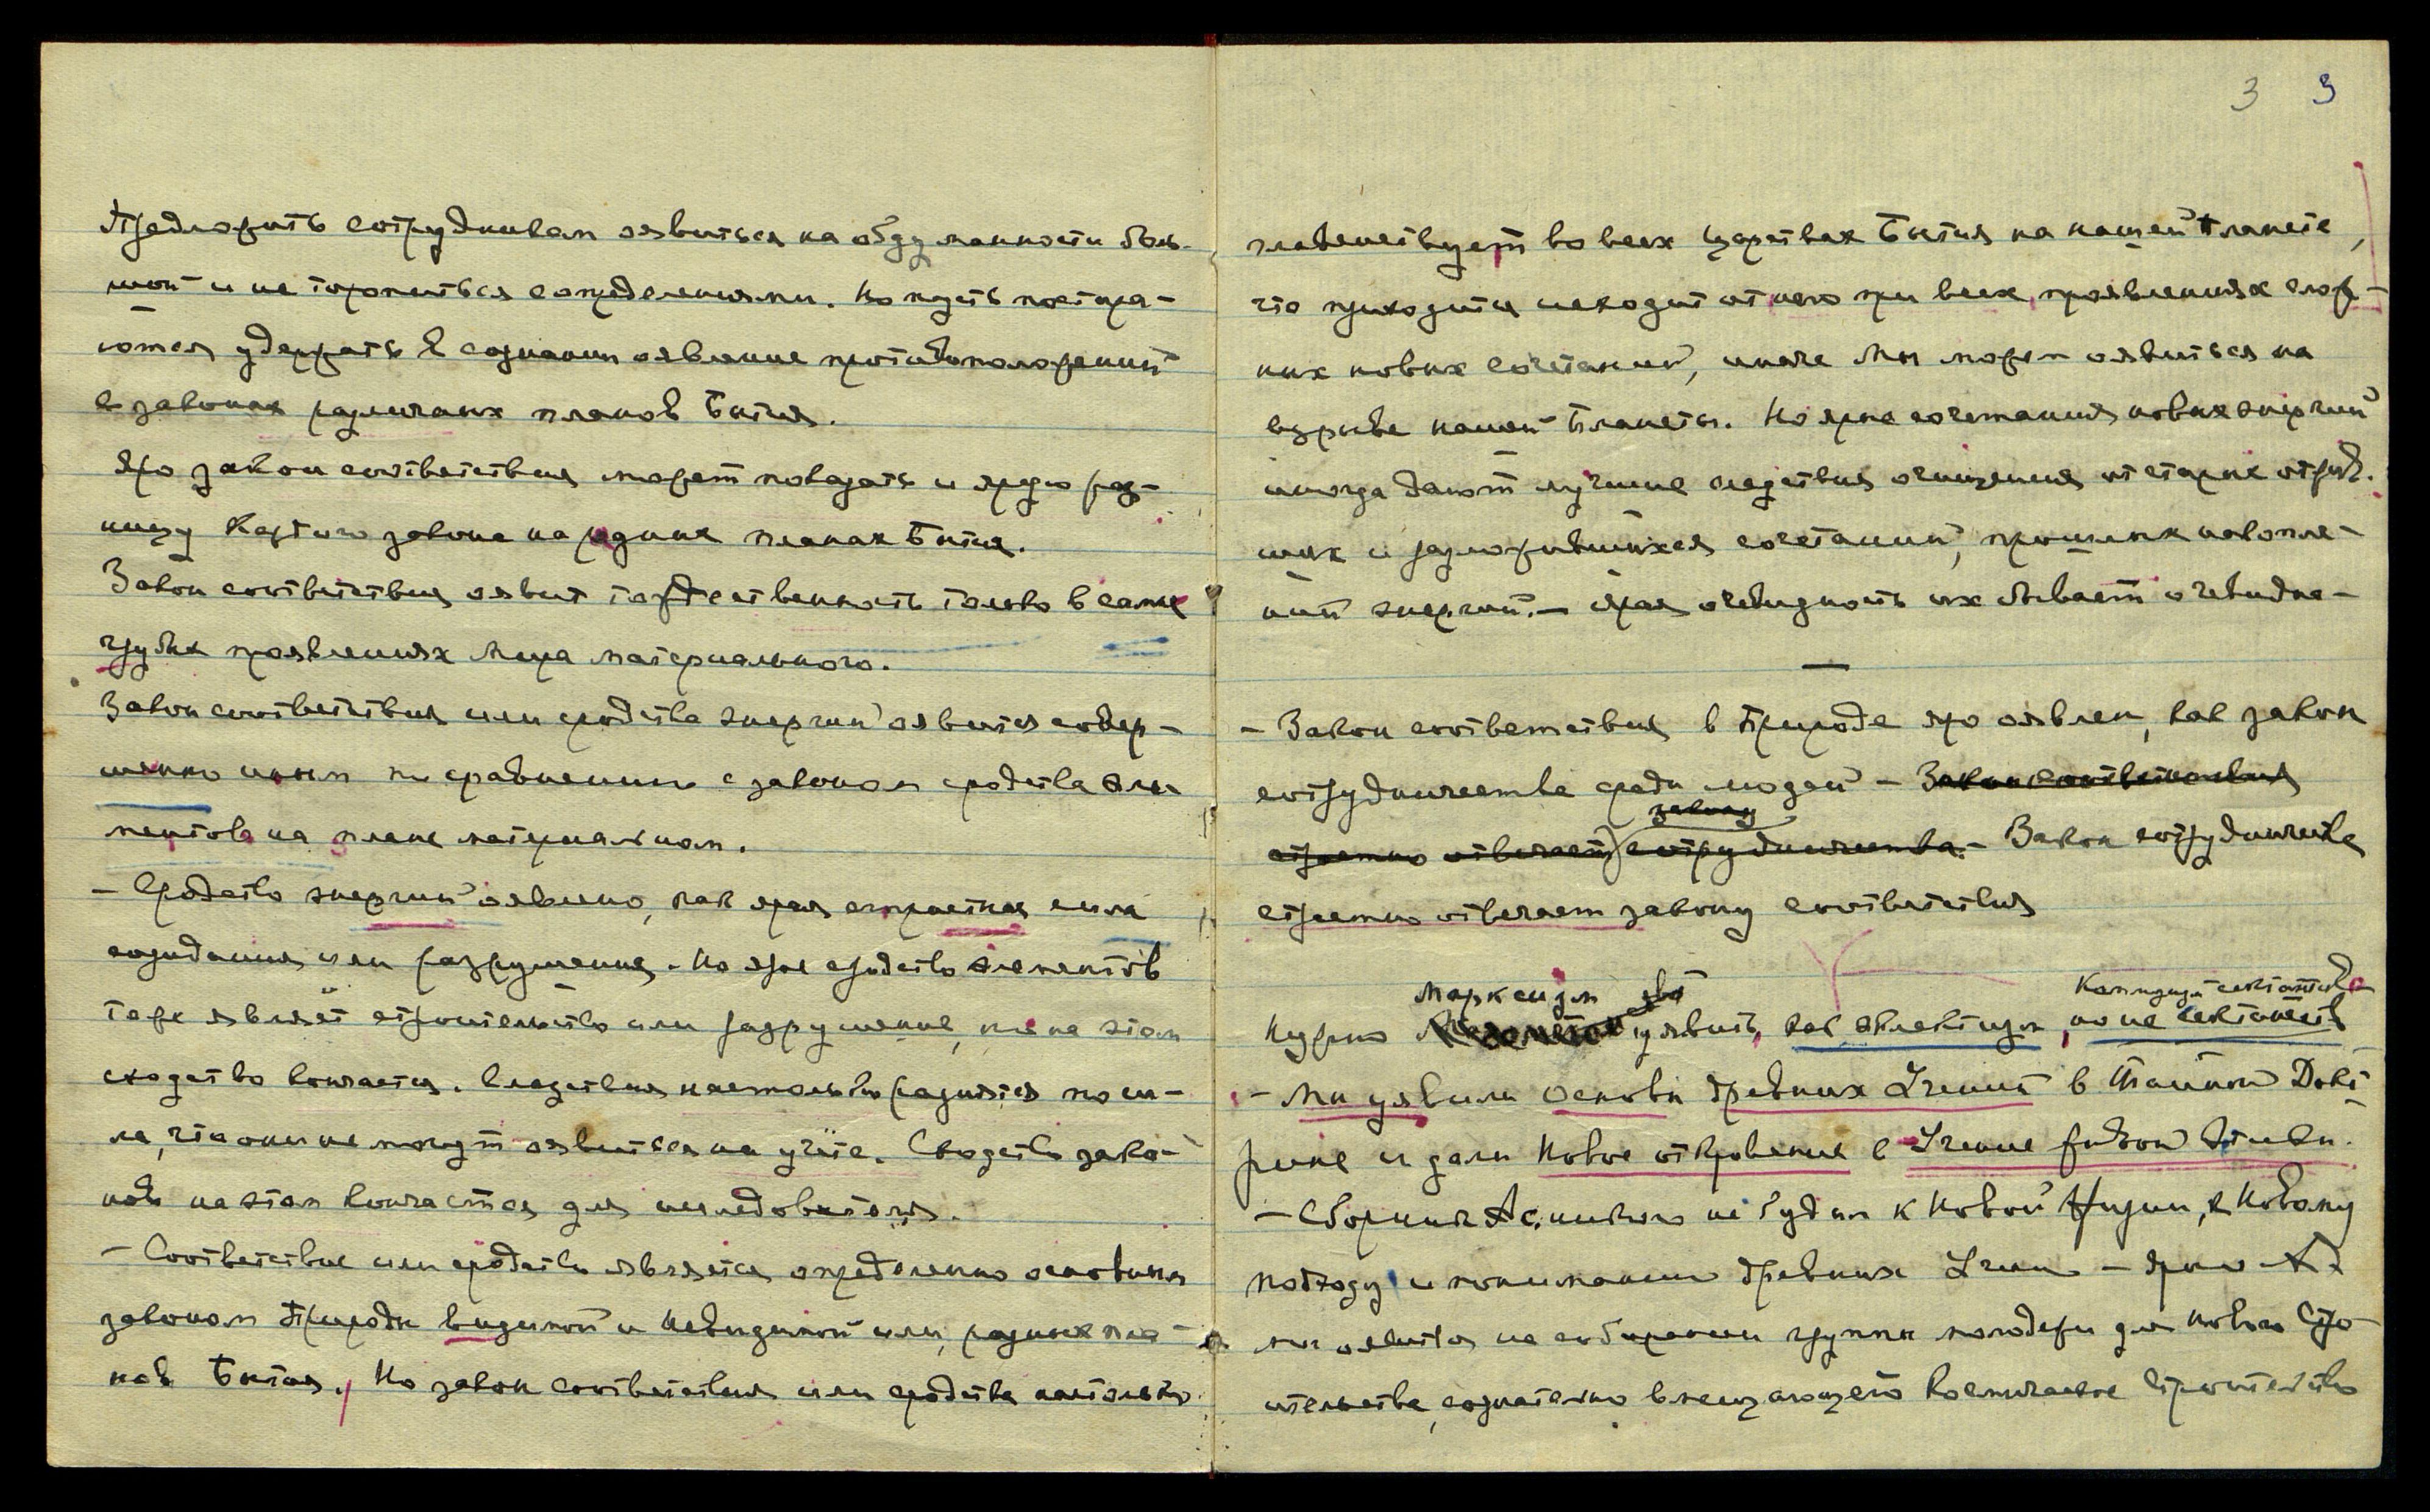 Предложить сотрудникам оявиться на обдуманности боль-
шой и не торопиться с определениями. Но пусть постара-
ются удержать в сознании оявление противоположений
в законах различных планов Бытия.
Яро закон соответствия может показать и ярую раз-
ницу каждого закона на разных планах Бытия.
Закон соответствия оявит тождественность только в самых
грубых проявлениях Мира материального.
Закон соответствия или сродства энергий оявится совер-
шенно иным по сравнению с законом сродства эле
ментов на плане материальном.
– Сродство энергий оявлено, как ярая страстная сила
созидания или разрушения. Но ярое сродство элементов
также являет строительство или разрушение, но на этом
сходство кончается. Следствия настолько разнятся по си-
ле, что они не могут оявиться на учёте. Сходство зако-
нов на этом кончается для исследователя.
– Соответствие или сродство является определенно основным
законом Природы видимой и Невидимой или разных пла-
нов Бытия. Но закон соответствия или сродства настолько
3 3
главенствует во всех царствах Бытия на нашей Планете,
что приходится исходить от него при всех проявлениях слож-
ных новых сочетаний, иначе Мы можем оявиться на
взрыве нашей Планеты. Но ярые сочетания новых энергий
иногда дают лучшие следствия очищения от старых отжив-
ших и разложившихся сочетаний, прошлых накопле-
ний энергий. – Ярая очевидность их бывает очевидна –
– Закон соответствия в Природе яро оявлен, как закон
сотрудничества среди людей – Закон соответствия
закону
страстно отвечает сотрудничества. – Закон сотрудничества
страстно отвечает закону соответствия
Марксизм
Нужно уявить, как эклектизм, но не
– Мы уявили основы древних Учений в Тайной Докт
рине и дали Новое откровение в Учение Живой Этики.
– Сборник не будет к Новой Жизни, к Новому
подходу и пониманию древних Учений – ярко
оявиться на собирании группы молодежи для Нового Стро
ительства, сознательно вмещающего Космическое Строительство